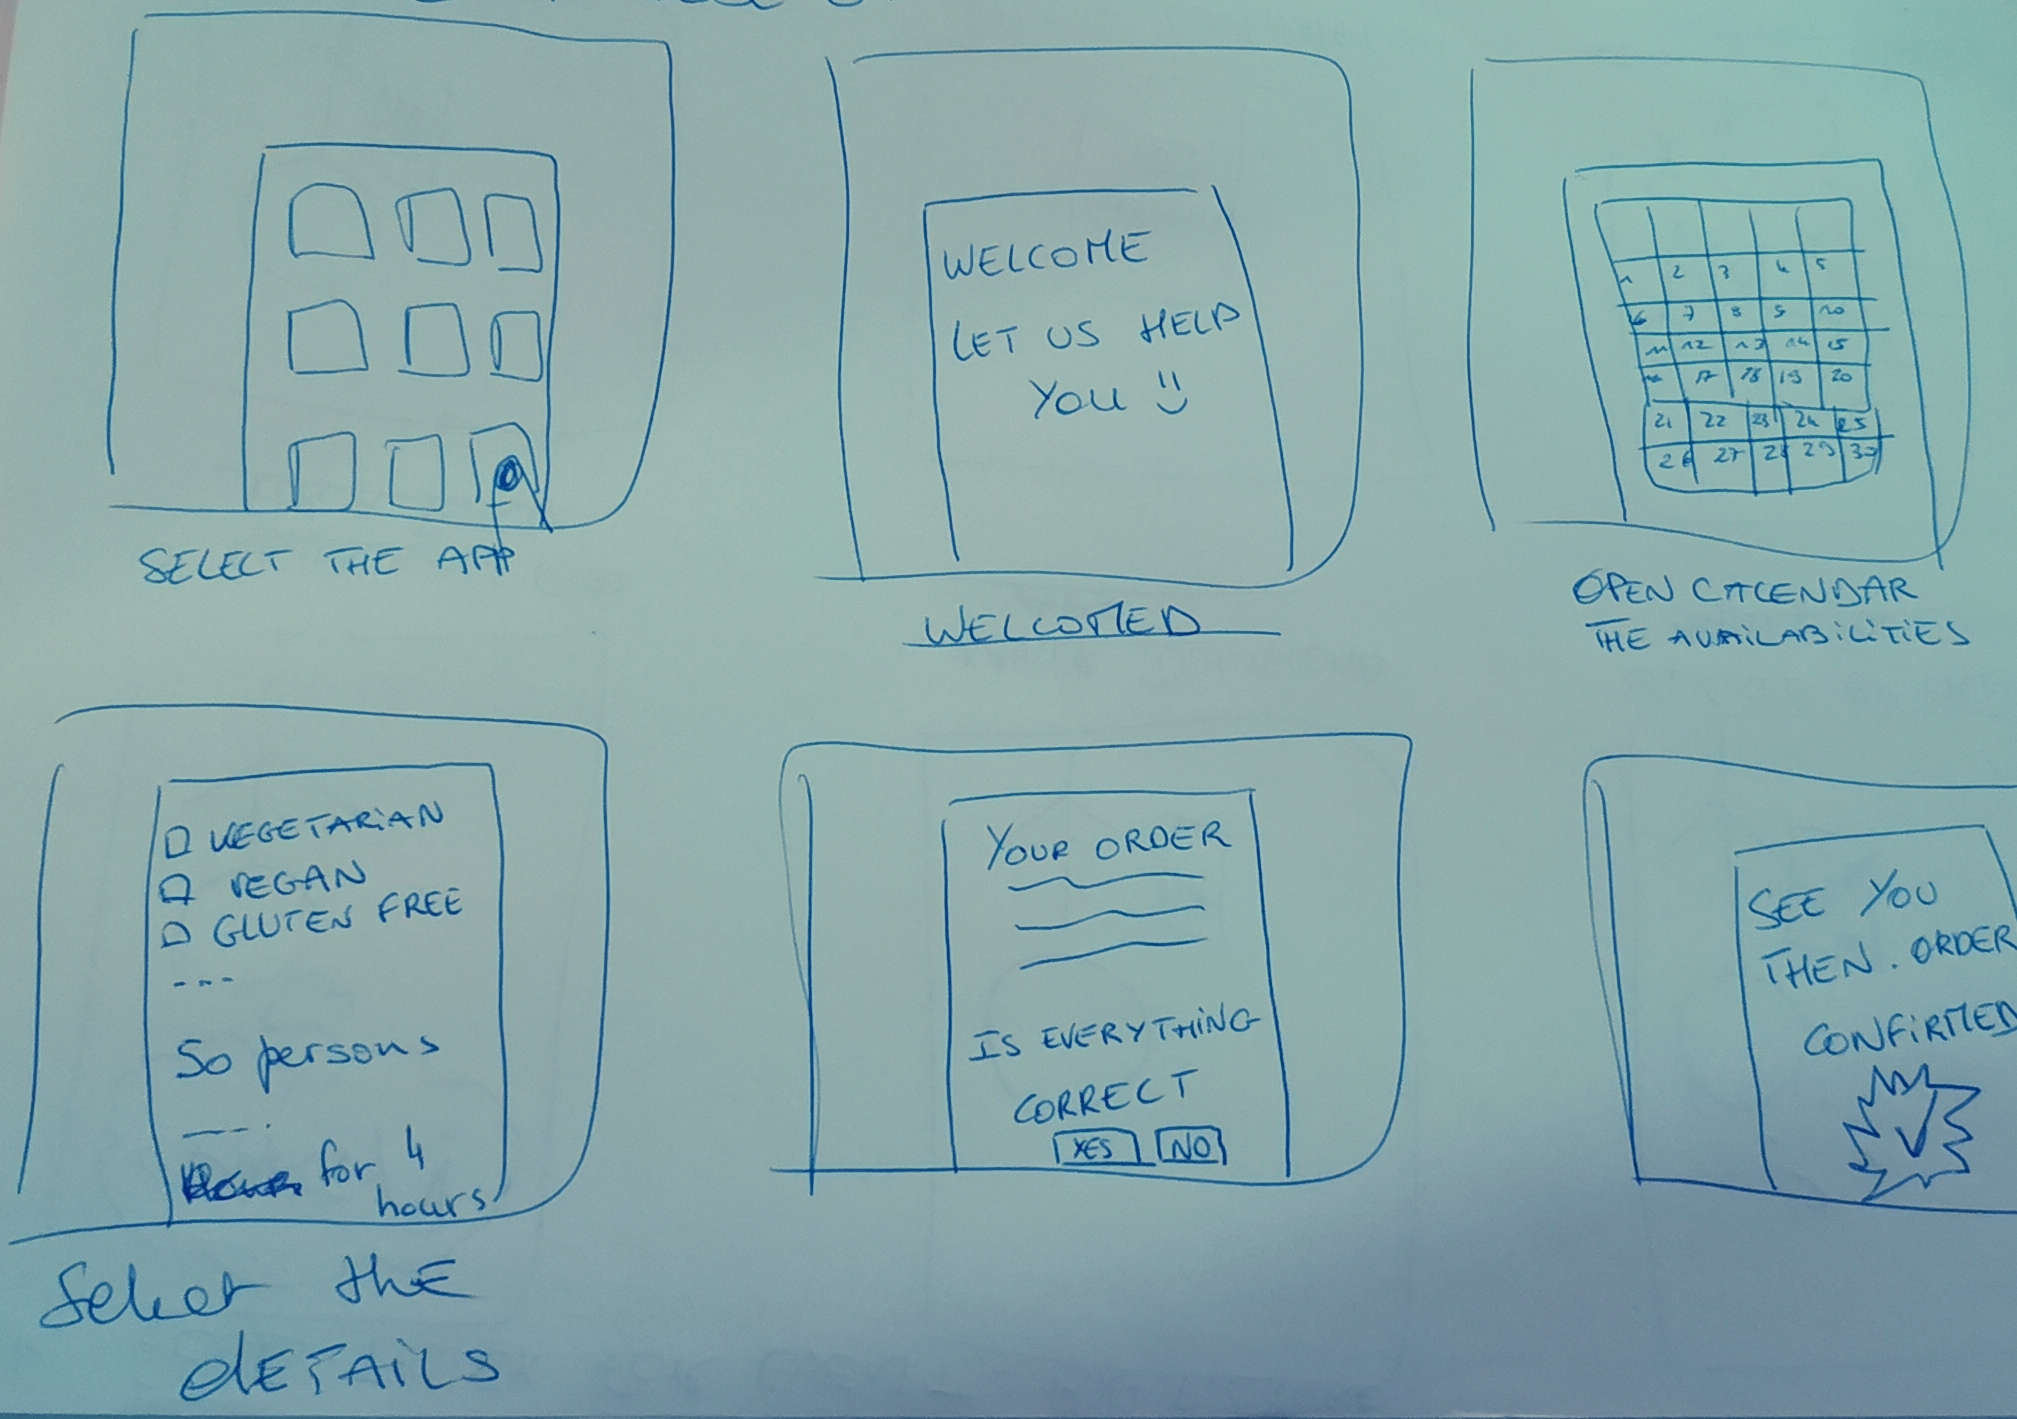 SELECT THE APP
WELCOME
LET US HELP
YOU
WELCOMED
1 2 3 4 5
6 7 8 9 10
11 12 13 14 15
17 18 19 20
21 22 23 24 25
26 27 28 29 30
OPEN CALENDAR
THE AVAILABILITIES
VEGETARIAN
VEGAN
GLUTEN FREE
---
50 persons
----.
for 4
hours
Select the
dETAILS
YOUR ORDER
IS EVERYTHING
CORRECT
YES NO
SEE YOU
THEN. ORDER
CONFIRMED